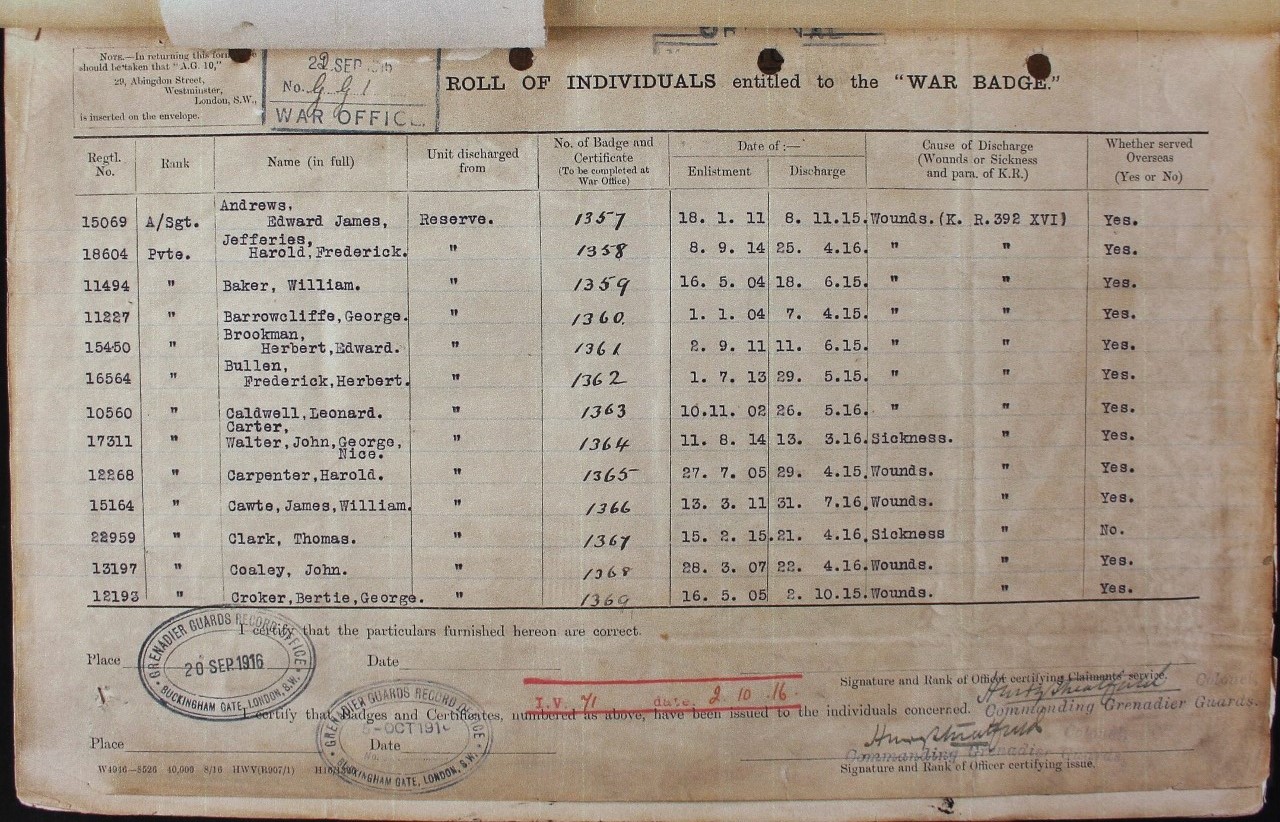 NOTE.—In returning this form
should be taken that "A.G. 10,"
29, Abingdon Street,
Westminster,
London, S.W.,
is inserted on the envelope.
SEP
No. GG1
WAR OFFICE
ROLL OF INDIVIDUALS entitled to the "WAR BADGE."
Regtl. No. Rank Name (in full) Unit discharged from No. of Badge and Certificate (To be completed at War Office) Date of :— Enlistment Discharge Cause of Discharge (Wounds or Sickness and para. of K.R.) Whether served Overseas (Yes or No)
15069 A/Sgt. Andrews, Edward James, Reserve. 1357 18. 1. 11 8. 11.15. Wounds.(K. R.392 XVI) Yes.
18604 Pvte. Jefferies, Harold,Frederick. " 1358 8. 9. 14 25. 4.16. " " Yes.
11494 " Baker, William. " 1359 16. 5. 04 18. 6.15. " " Yes.
11227 " Barrowcliffe,George. " 1360. 1. 1. 04 7. 4.15. " " Yes.
15450 " Brookman, Herbert,Edward. " 1361 2. 9. 11 11. 6.15. " " Yes.
16564 " Bullen, Frederick,Herbert. " 1362 1. 7. 13 29. 5.15. " " Yes.
10560 " Caldwell,Leonard. " 1363 10.11. 02 26. 5.16. " " Yes.
17311 " Carter, Walter,John,George, Nice. " 1364 11. 8. 14 13. 3.16. Sickness. " Yes.
12268 " Carpenter,Harold. " 1365 27. 7. 05 29. 4.15. Wounds. " Yes.
15164 " Cawte,James,William. " 1366 13. 3. 11 31. 7.16. Wounds. " Yes.
22959 " Clark, Thomas. " 1367 15. 2. 15. 21. 4.16. Sickness " No.
13197 " Coaley, John. " 1368 28. 3. 07 22. 4.16. Wounds. " Yes.
12193 " Croker,Bertie,George. " 1369 16. 5. 05 2. 10.15. Wounds. " Yes.
I certify that the particulars furnished hereon are correct.
Place Date
GRENADIER GUARDS RECORD OFFICE
20 SEP 1916
BUCKINGHAM GATE, LONDON, S.W.
Signature and Rank of Officer certifying Claimants' service.
Colonel
Commanding Grenadier Guards.
I.V. 71 date. 2 10 .16.
I certify that Badges and Certificates, numbered as above, have been issued to the individuals concerned.
GRENADIER GUARDS RECORD OFFICE
-OCT 191
BUCKINGHAM GATE, LONDON, S.W.
Place Date
Commanding Grenadier Guards.
Signature and Rank of Officer certifying issue.
W4946—8526 40,000 8/16 HWV(R907/1)